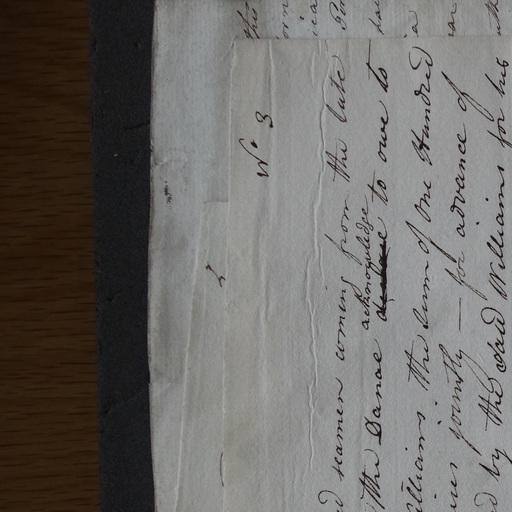 N° 3
seamen coming from the late
the Danae acknowledge to owe to
Williams the Sum of One Hundred
jointly — for advance of
by the said Williams for his